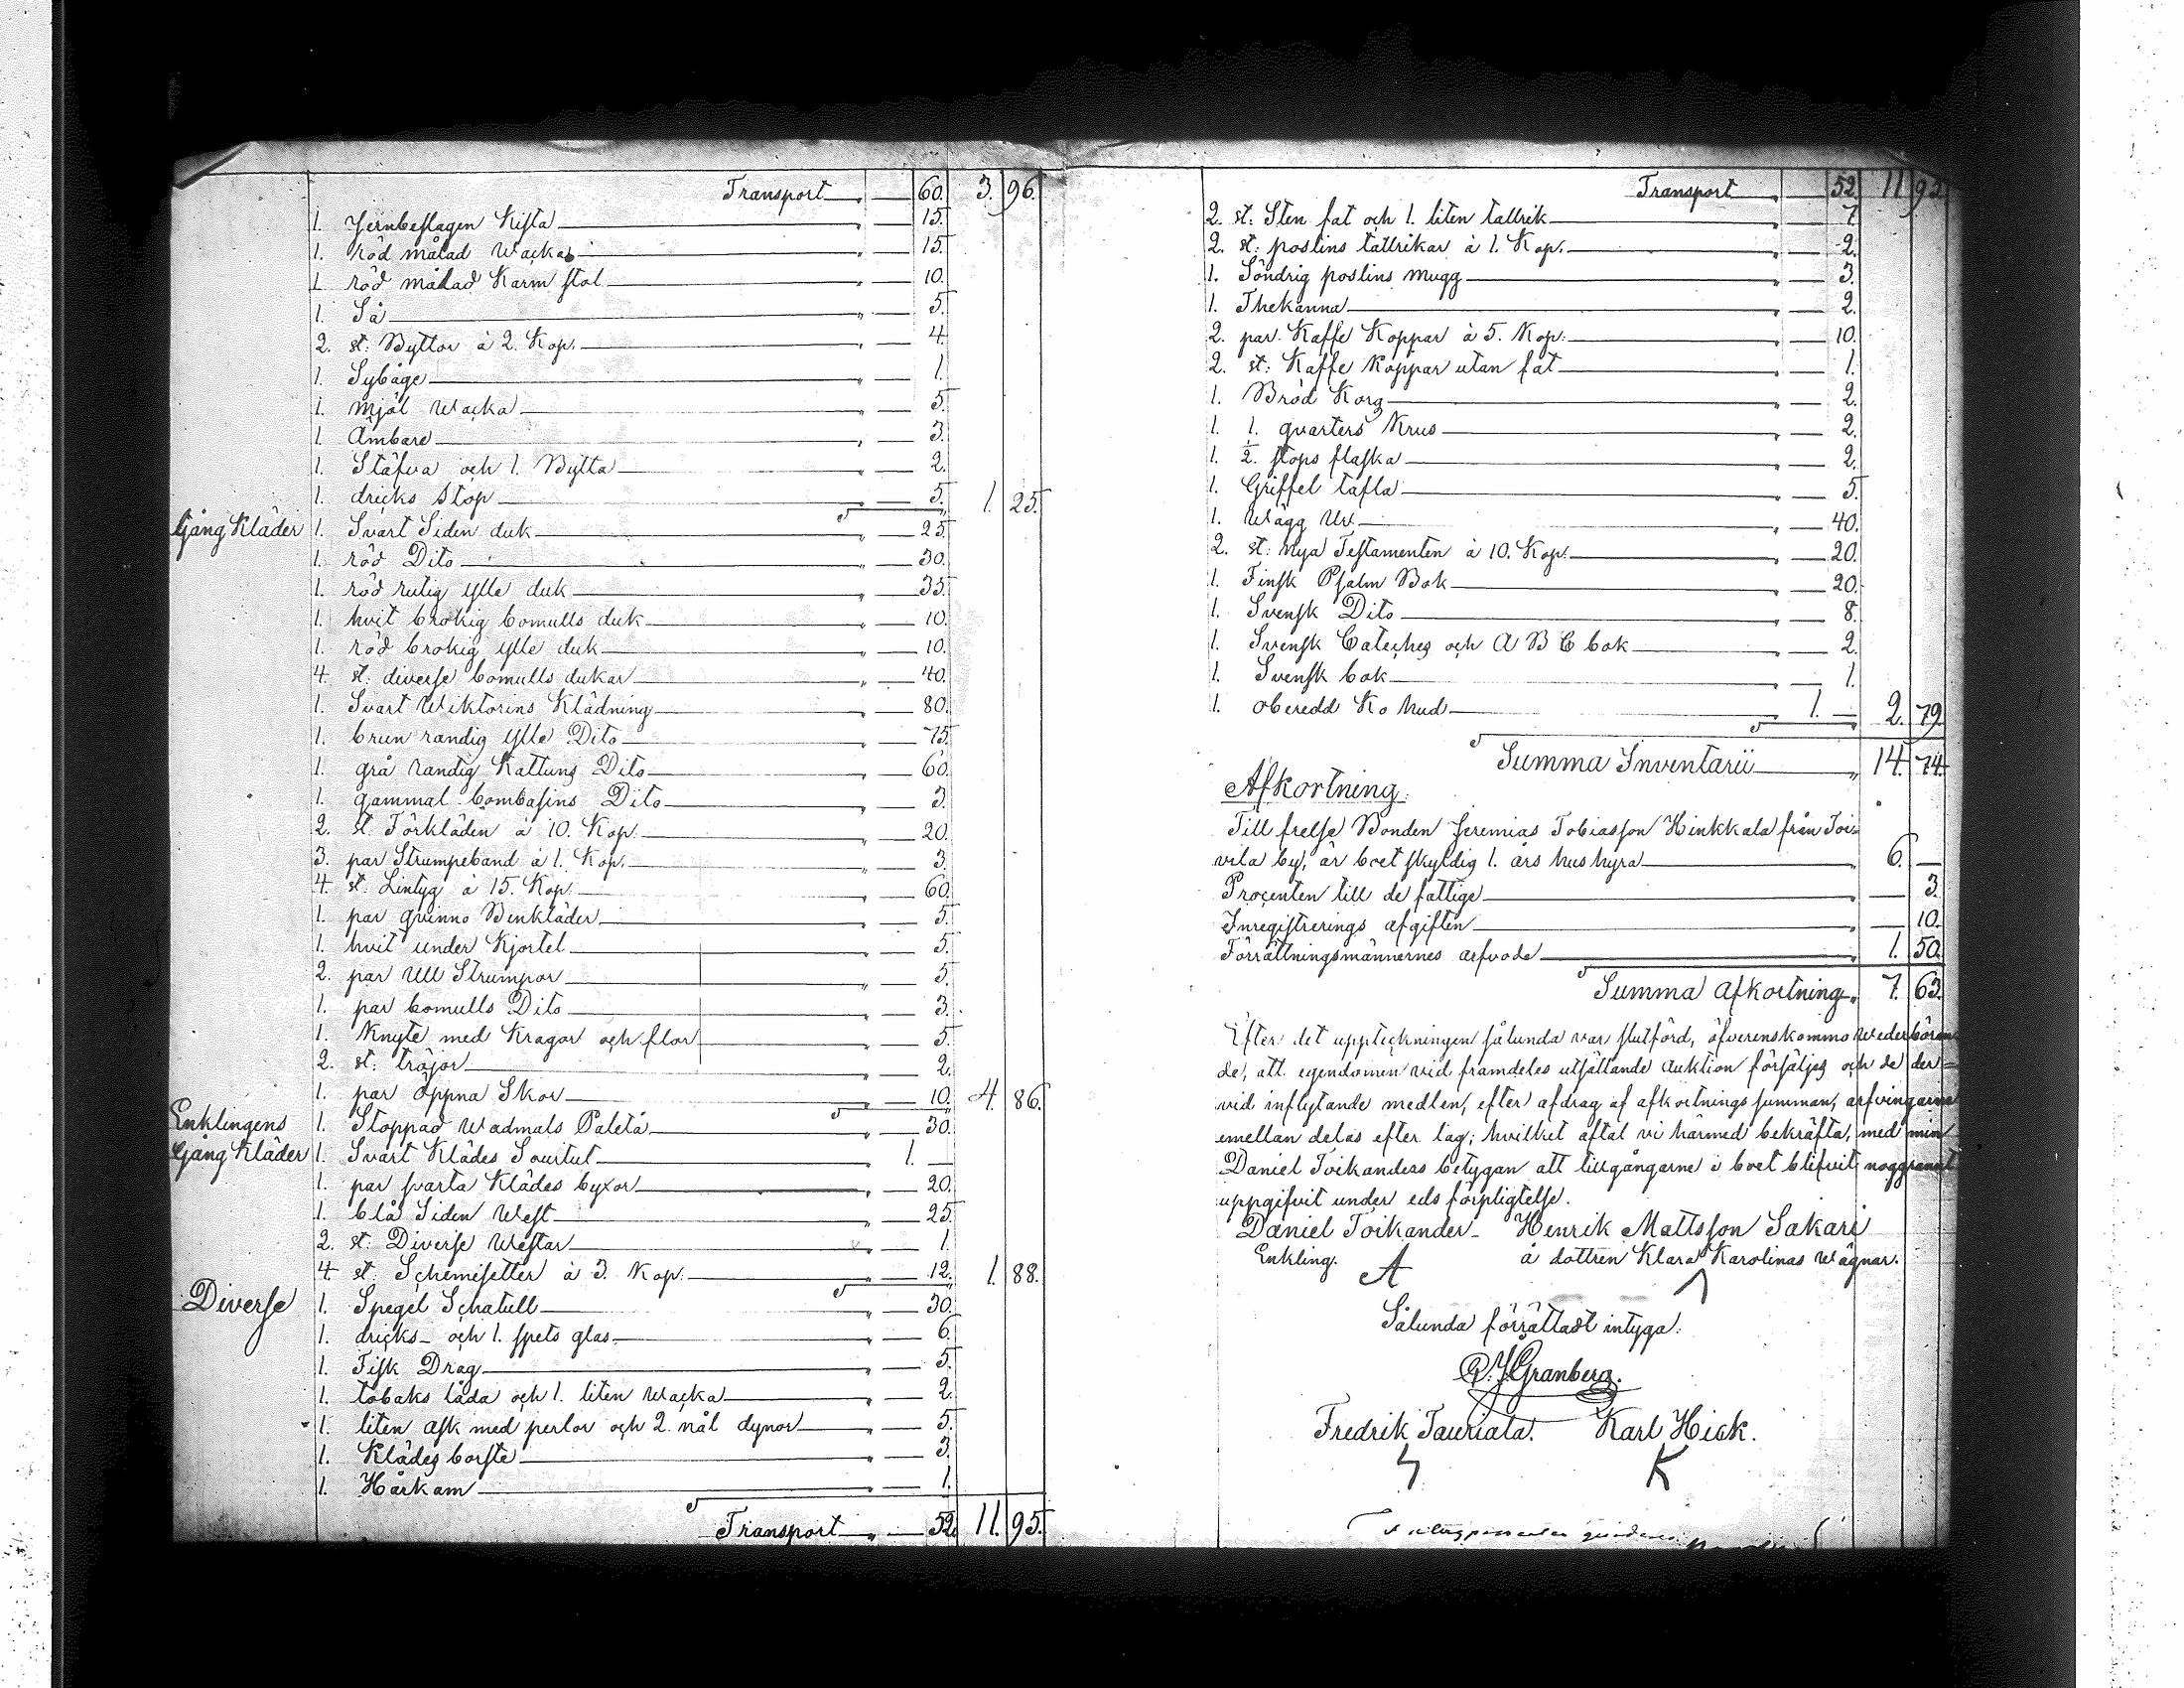 Transport — 60. 3. 96.
1. Jernbeslagen Kista — 15.
1. röd målad Wacka — 15.
1. röd målad Karm stol — 10.
1. Så — 5.
2. st: Byttor à 2. Kop. — 4.
1. Sybåge — 1.
1. mjöl Wacka — 5.
1. Ämbare — 3.
1. Stäfva och 1. Bytta — 2.
1. dricks Stop — 5. 1. 25.
Gång Kläder 1. Svart Siden duk — 25.
1. röd Dito — 30.
1. röd rutig ylle duk — 35.
1. hvit brokig bomulls duk — 10.
1. röd brokig ylle duk — 10.
4. st: diverse bomulls dukar — 40.
1. Svart Wiktorins Klädning — 80.
1. brun randig ylle Dito — 75.
1. grå randig Kattuns Dito — 60.
1. gammal bombasins Dito — 3.
2. st. Förkläden à 10. Kop. — 20.
3. par Strumpeband à 1. Kop. — 3.
4. st. Lintyg à 15. Kop. — 60.
1. par qvinno Benkläder — 5.
1. hvit under Kjortel — 5.
2. par Ull Strumpor — 5.
1. par bomulls Dito — 3.
1. Knyte med Kragar och flor — 5.
2. st: tröjor — 2.
1. par öppna Skor — 10. 4. 86.
Enklingens 1. Stoppad Wadmals Paletå — 30.
Gång Kläder 1. Svart Klädes Sourtut — 1. —
1. par svarta Klädes byxor — 20.
1. blå Siden West — 25.
2. st: Diverse Westar — 1.
4. st: Schemisetter à 3. Kop. — 12. 1. 88.
Diverse 1. Spegel Schatull — 30.
1. dricks- och 1. spets glas — 6.
1. Fisk Drag — 5.
1. tobaks låda och 1. liten Wacka — 2.
1. liten ask med perlor och 2. nål dynor — 5.
1. Klädes borste — 3.
1. Hårkam — 1.
Transport — 52. 11. 95.
Transport — 52. 11. 92
2. st: Sten fat och 1. liten tallrik — 7.
2. st: poslins tallrikar à 1. Kop. — 2.
1. Söndrig poslins mugg — 3.
1. Thekanna — 2.
2. par. Kaffe Koppar à 5. Kop. — 10.
2. st: Kaffe Koppar utan fat — 1.
1. Bröd Korg — 2.
1. 1. qvarters Krus — 2.
1. ½ stops flaska — 2.
1. Griffel tafla — 5.
1. Wägg Ur — 40.
2. st: nya Testamenten à 10. Kop. — 20.
1. Finsk Psalm Bok — 20.
1. Svensk Dito — 8.
1. Svensk Cateches och A B C bok — 2.
1. Svensk bok — 1.
1. oberedd Ko hud — 1. — 2. 79.
Summa Inventarii — 14. 74.
Afkortning.
Till frelse Bonden Jeremias Tobiasson Hinkkala från Toi-
vila by, är boet skyldig 1. års hushyra — 6. —
Procenten till de fattige — 3.
Inregistrerings afgiften — 10.
Förrättningsmännernes arfvode — 1. 50.
Summa afkortning. 7. 63.
Efter det uppteckningen sålunda var slutförd, öfverenskommo wederböran-
de, att egendomen vid framdeles utsättande Auktion försäljes och de der-
vid inflytande medlen, efter afdrag af afkortnings summan, arfvingarne
emellan delas efter lag; hvilket aftal vi härmed bekräfta, med min
Daniel Toikanders betygan att tillgångarne i boet blifvit noggrannt
uppgifvit under eds förpligtelse.
Daniel Toikander- Henrik Mattsson Sakari
Enkling. å dottren Klara Karolinas Wägnar.
Sålunda förrättadt intyga:
Granberg.
Fredrik Tauriala. Karl Hick.
K